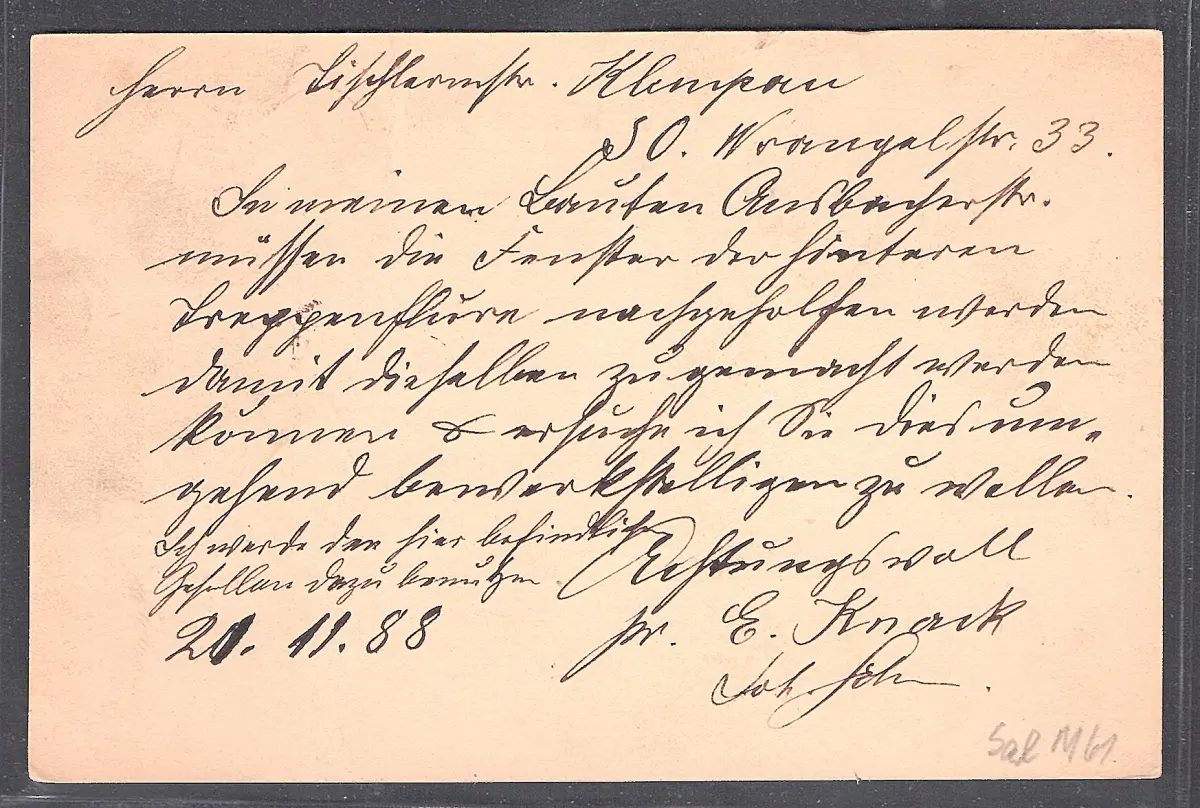 Herrn Tischlermstr. Klempau
SO. Wrangelstr. 33.
In meinen Bauten Ansbacherstr.
müssen die Fenster der hinteren
Treppenflure nachgeholfen werden
damit dieselben zugemacht werden
können & ersuche ich Sie dies um-
gehend bewerkstelligen zu wollen.
Ich werde den hier befindlichen
Gesellen dazu benutzen
Achtungsvoll
21. 11. 88
pr. E. Knack